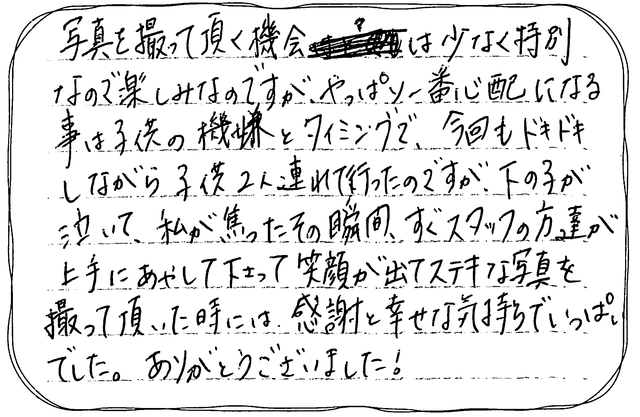 写真を撮って頂く機会は少なく特別
なので楽しみなのですが、やっぱり一番心配になる
事は子供の機嫌とタイミングで、今回もドキドキ
しながら子供2人連れて行ったのですが、下の子が
泣いて、私が焦ったその瞬間、すぐスタッフの方達が
上手にあやして下さって笑顔が出てステキな写真を
撮って頂いた時には、感謝と幸せな気持ちでいっぱい
でした。ありがとうございました!